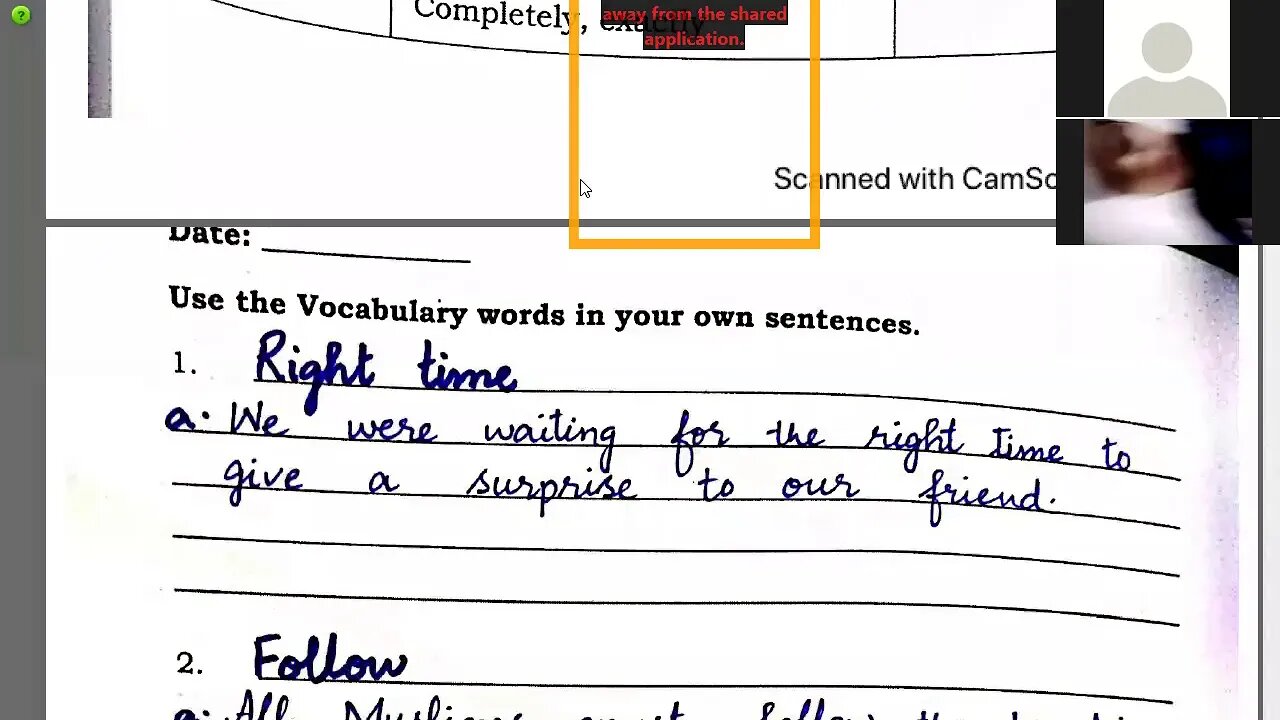 Completely, exactly
away from the shared
application.
Scanned with CamSc
Date:
Use the Vocabulary words in your own sentences.
1. Right time
a. We were waiting for the right time to
give a surprise to our friend.
2. Follow
a. All Muslims must follow the